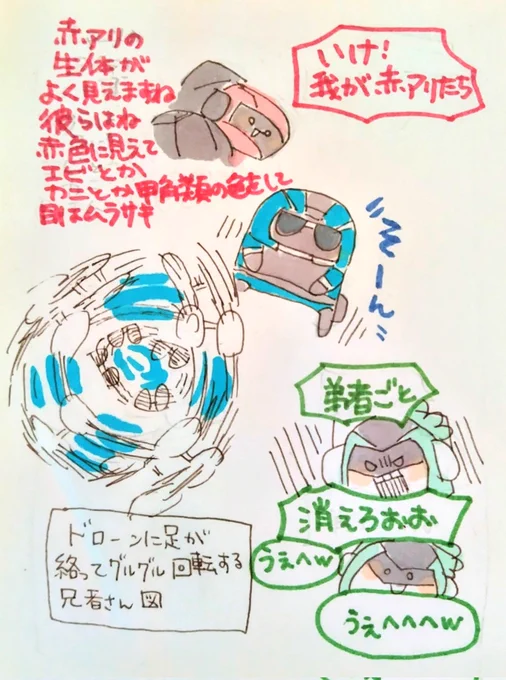 赤アリの
生体が
よく見えますね
彼らはね
赤色に見えて
エビとか
カニとか甲角類の色をして
目はムラサキ
いけ!
我が赤アリたち
そーん
弟者ごと
消えろおお
うぇへw
うぇへへへw
ドローンに足が
絡ってグルグル回転する
兄者さん図